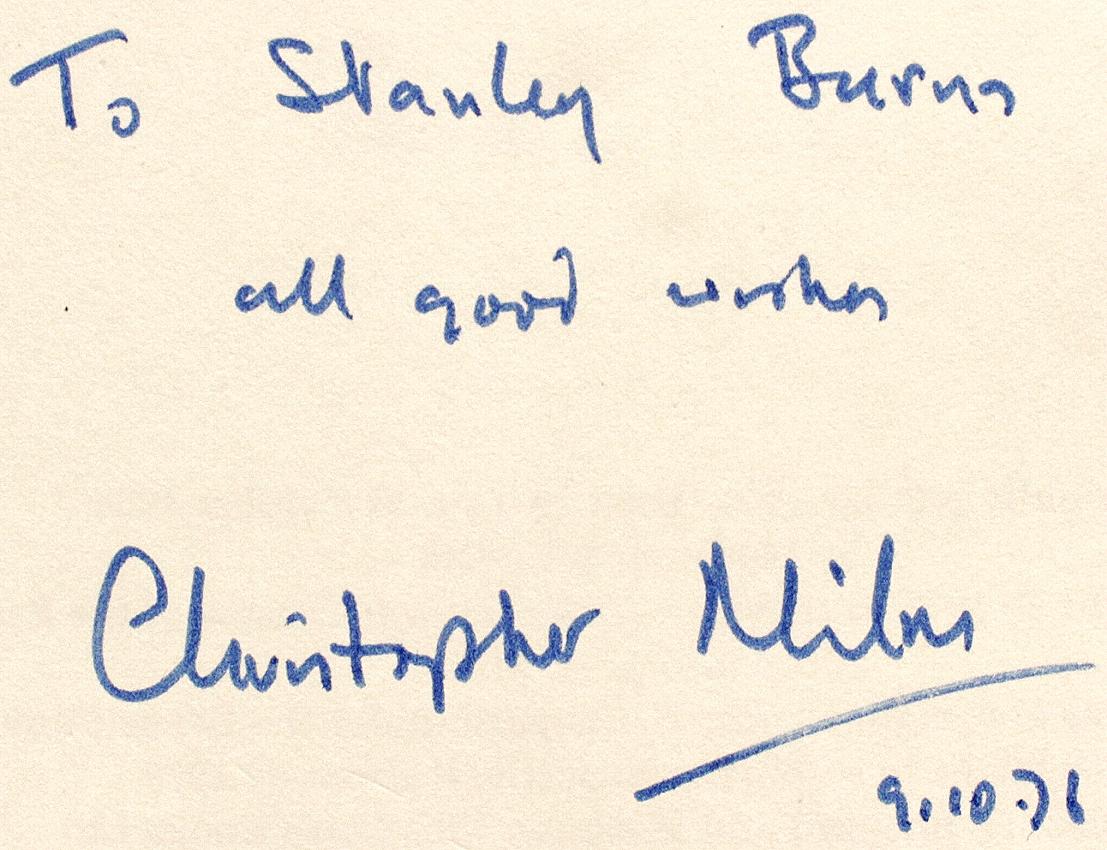 To Stanley Burns
all good wishes
Christopher Miles
9.10.76